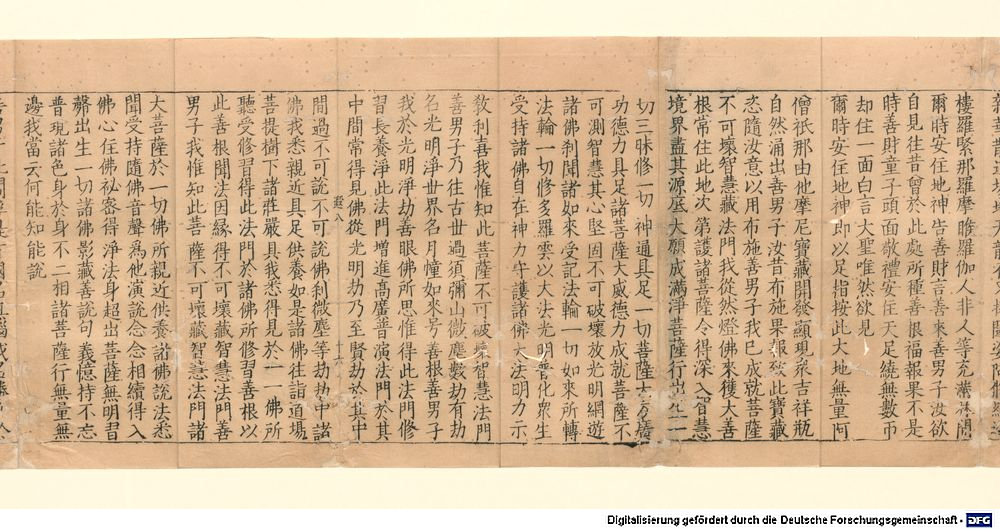 樓羅緊那羅摩睺羅伽人非人等充滿林間
爾時安住地神告善財言善來善男子汝欲
自見往昔曾於此處所種善根福報果不是
時善財童子頭面敬禮安住天足繞無數帀
却住一面白言大聖唯然欲見
爾時安住地神即以足指按此大地無量阿
僧祇那由他摩尼寶藏開發顯現衆吉祥瓶
自然涌出善男子汝昔布施果報致此寶藏
恣隨汝意以用布施善男子我已成就菩薩
不可壞智慧藏法門我從然燈佛來獲大善
根常住此地次第護諸菩薩令得深入智慧
境界盡其源底大願成滿淨菩薩行出生一
切三昧修一切神通具足一切菩薩大方廣
功德力具足諸菩薩大威德力成就菩薩不
可測智慧其心堅固不可破壞放光明網遊
諸佛刹聞諸如來受記法輪一切如來所轉
法輪一切修多羅雲以大法光明饗化衆生
受持諸佛自在神力守護諸佛大法明力示
敎利喜我惟知此菩薩不可破壞智慧法門
善男子乃往古世過須彌山微塵數劫有劫
名光明淨世界名月幢如來号善根善男子
我於光明淨劫善眼佛所思惟得此法門修
習長養淨此法門增進高廣普演法門於其
中間常得見佛從光明劫乃至賢劫於其中
間過不可說不可說佛刹微塵等劫劫中諸
佛我悉親近具足供養如是諸佛往詣道場
菩提樹下諸莊嚴具我悉得見於一一佛所
聽受修習得此法門於諸佛所修習善根以
此善根聞法因緣得不可壞藏智慧法門善
男子我惟知此菩薩不可壞藏智慧法門諸
大菩薩於一切佛所親近供養諸佛說法悉
聞受持隨佛音聲爲他演說念念相續得入
佛心住佛祕密得淨法身超出菩薩無明習
骸出生一切諸佛影藏善說句義憶持不忘
普現諸色身於身不二相諸菩薩行無量無
邊我當云何能知能說
Digitalisierung gefördert durch die Deutsche Forschungsgemeinschaft - DFG